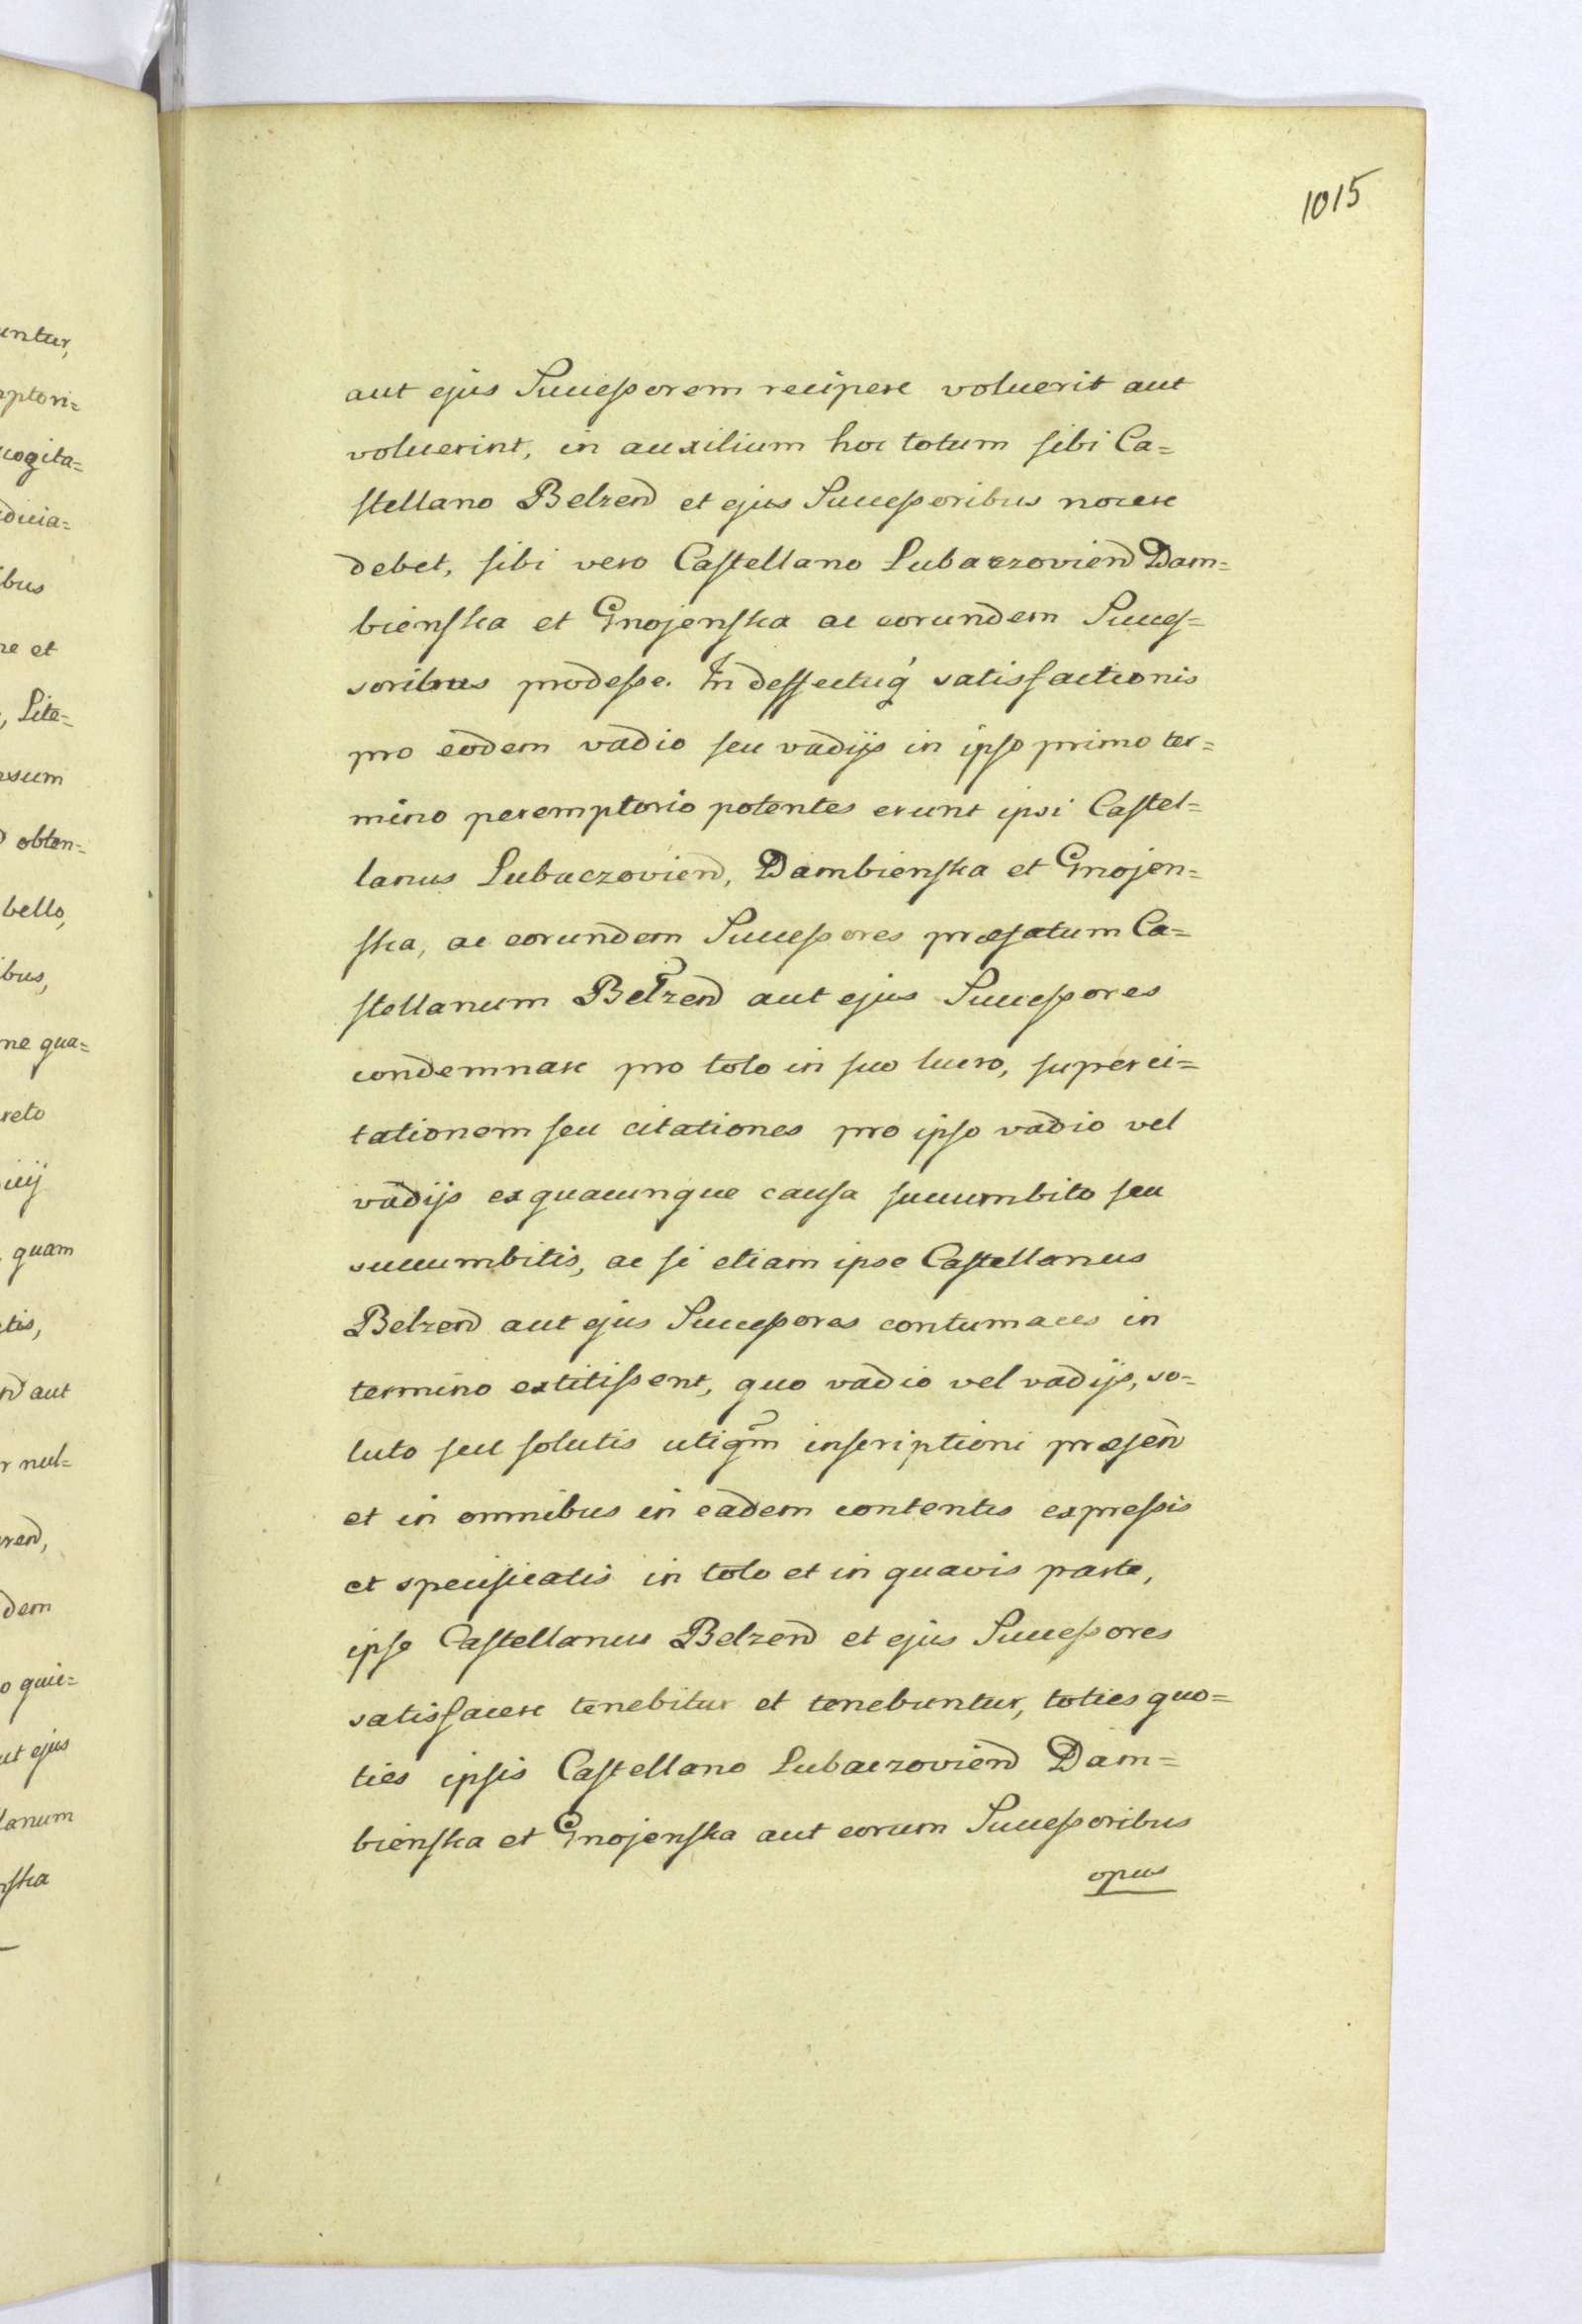 1015
aut ejus Successorem recipere voluerit aut
voluerint, in auxilium hoc totum sibi Ca=
stellano Belzen̄ et ejus Successoribus nocere
debet, sibi vero Castellano Lubaczovien̄ Dam=
bienska et Gnojenska ac eorundem Succes=
soribus prodesse. In deffectuq́ satisfactionis
pro eodem vadio seu vadijs in ipso primo ter=
mino peremptorio potentes erunt ipsi Castel=
lanus Lubaczovien̄, Dambienska et Gnojen=
ska, ac eorundem Successores præfatum Ca=
stellanum Belzen̄ aut ejus Successores
condemnare pro toto in suo lucro, super ci=
tationem seu citationes pro ipso vadio vel
vadijs ex quacunque causa succumbito seu
succumbitis, ac si etiam ipse Castellanus
Belzen̄ aut ejus Successores contumaces in
termino extitissent, quo vadio vel vadijs, so=
luto seu solutis utiq̃m inscriptioni præsen̄
et in omnibus in eadem contentis expressis
et specificatis in toto et in quavis parte,
ipse Castellanus Belzen̄ et ejus Successores
satisfacere tenebitur et tenebuntur, toties quo=
ties ipsis Castellano Lubaczovien̄ Dam=
bienska et Gnojenska aut eorum Successoribus
opus
untur,
ptori=
cogita=
bus
re et
, Lite=
obten=
bello,
ibus,
ne qua=
reto
quam
tis,
aut
r nul=
dem
o quie=
ut ejus
lanum
nska